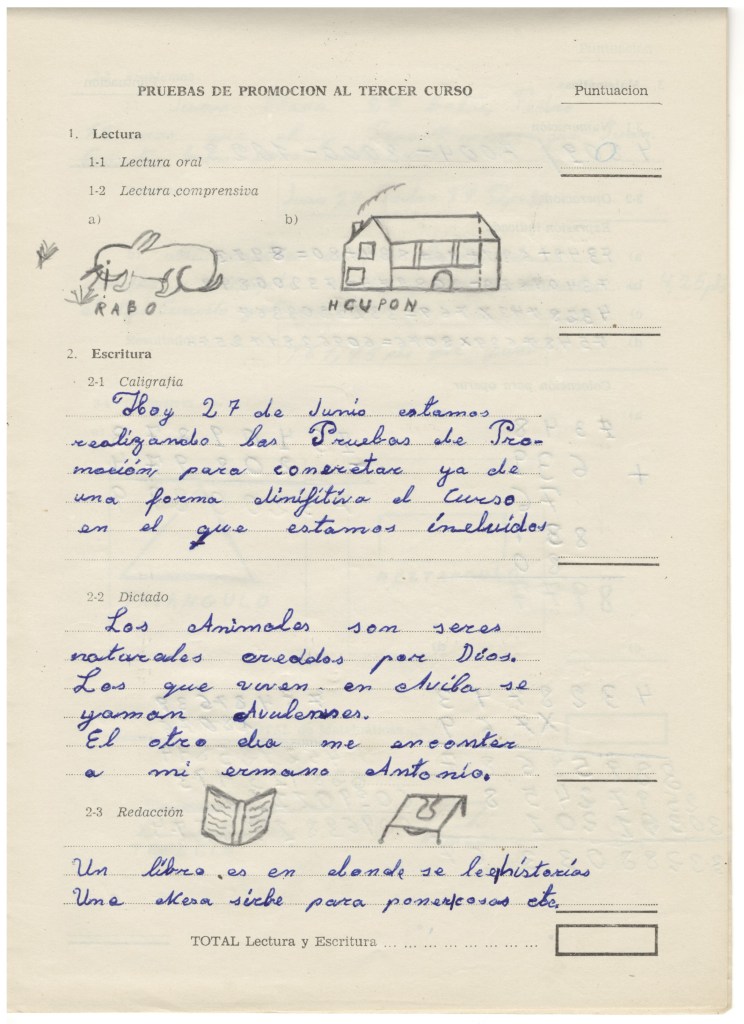 PRUEBAS DE PROMOCION AL TERCER CURSO
Puntuacion
1. Lectura
1-1 Lectura oral
1-2 Lectura comprensiva
a) b)
RABO HCUPON
2. Escritura
2-1 Caligrafia
Hoy 27 de Junio estamos
realizando las Pruebas de Pro-
moción, para concretar ya de
una forma dinifitiva el Curso
en el que estamos incluidos
2-2 Dictado
Los Animales son seres
naturales creddos por Dios.
Los que viven en Avila se
yaman Avulenses.
El otro dia me enconter
a mi ermano Antonio.
2-3 Redacción
Un libro es en donde se lee historias
Una Mesa sirbe para poner cosas etc.
TOTAL Lectura y Escritura ... ... ... ... ... ... ... ...